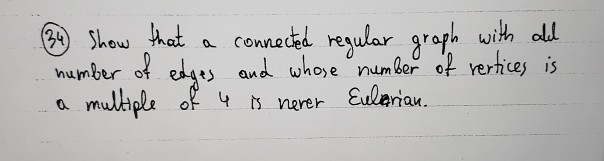 (34) Show that a connected regular graph with odd
number of edges and whose number of vertices is
a multiple of 4 is never Eulerian.